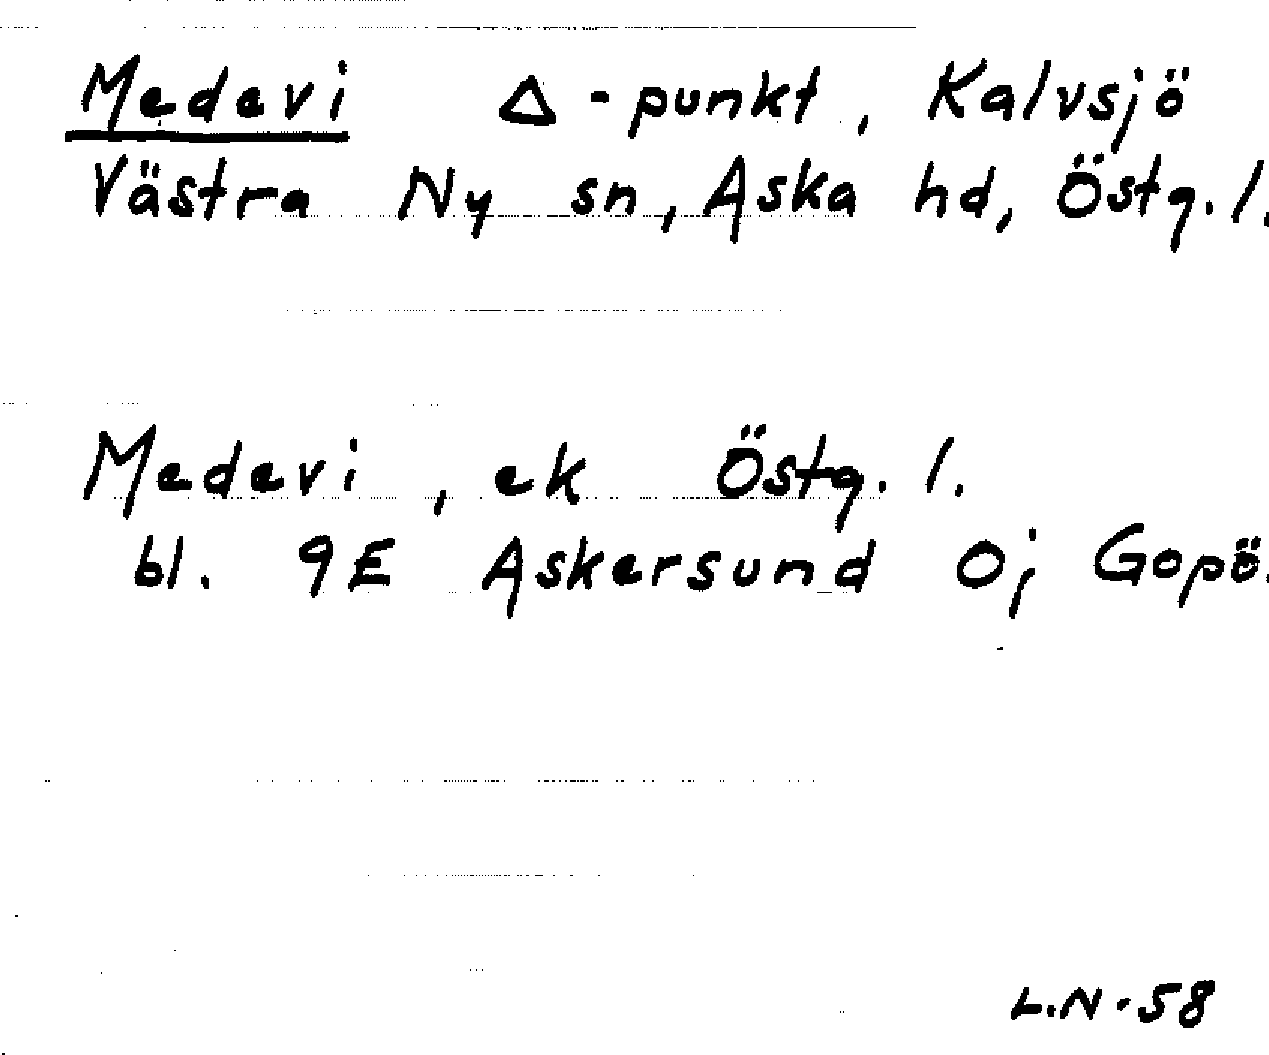 Medevi Δ-punkt, Kalvsjö
Västra Ny sn, Aska hd, Östg. l.
Medevi, ek Östg. l.
bl. 9E Askersund Oj Gopö.
L.N-58